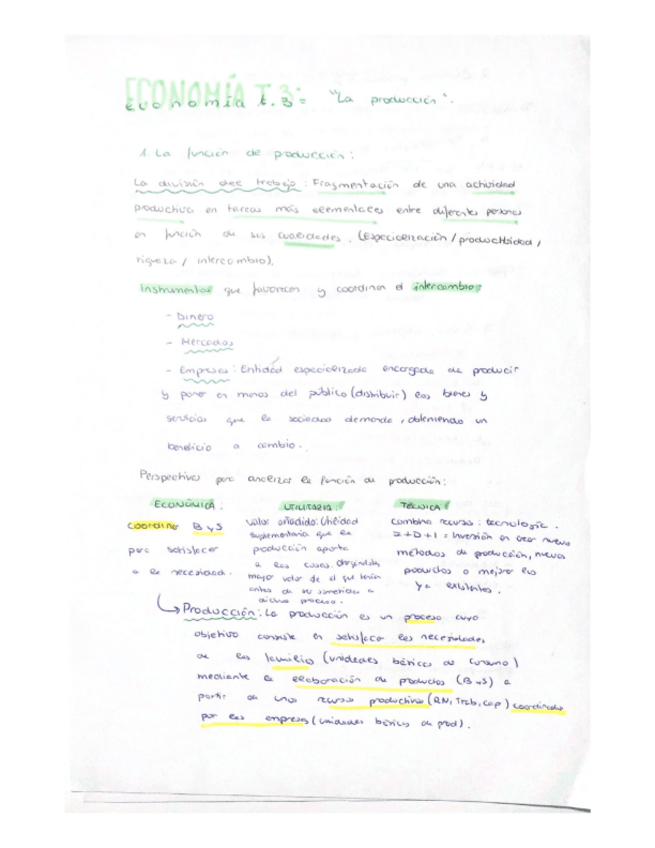 ECONOMÍA T.3:
Economía t.3= "La producción".
1. La función de producción:
La división del trabajo: Fragmentación de una actividad
productiva en tareas más elementales entre diferentes personas
en función de sus cualidades. (Especialización/productividad/
riqueza/intercambio).
Instrumentos que favorecen y coordinan el intercambio:
- Dinero
- Mercados
- Empresas: Entidad especializada encargada de producir
y poner en manos del público (distribuir) los bienes y
servicios que la sociedad demanda, obteniendo un
beneficio a cambio.
Perspectivas para analizar la función de producción:
ECONÓMICA:
coordina B y S
para satisfacer
a la necesidad.
UTILITARIA:
valor añadido: Utilidad
suplementaria que la
producción aporta
a las cosas, dándoles
mayor valor de el que tenían
antes de ser sometidas a
dicho proceso.
TÉCNICA
combina recursos: tecnología.
I+D+I = Inversión en crear nuevos
métodos de producción, nuevos
productos o mejorar los
ya existentes.
Producción: La producción es un proceso cuyo
objetivo consiste en satisfacer las necesidades
de las familias (unidades básicas de consumo)
mediante la elaboración de productos (B y S) a
partir de unos recursos productivos (RN, Trab, cap) coordinados
por las empresas (unidades básicas de prod).